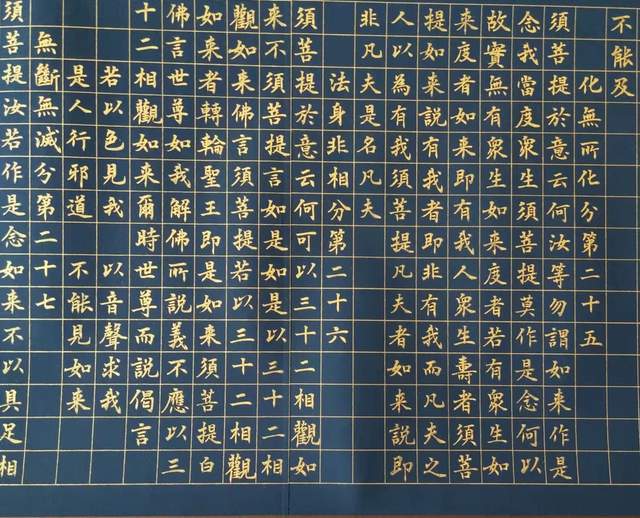 不能及
化無所化分第二十五
須菩提於意云何汝等勿謂如來作是
念我當度眾生須菩提莫作是念何以
故實無有眾生如來度者若有眾生如
來度者如來即有我人眾生壽者須菩
提如來說有我者即非有我而凡夫之
人以為有我須菩提凡夫者如來說即
非凡夫是名凡夫
法身非相分第二十六
須菩提於意云何可以三十二相觀如
來不須菩提言如是如是以三十二相
觀如來佛言須菩提若以三十二相觀
如來者轉輪聖王即是如來須菩提白
佛言世尊如我解佛所說義不應以三
十二相觀如來爾時世尊而說偈言
若以色見我 以音聲求我
是人行邪道 不能見如來
無斷無滅分第二十七
須菩提汝若作是念如來不以具足相